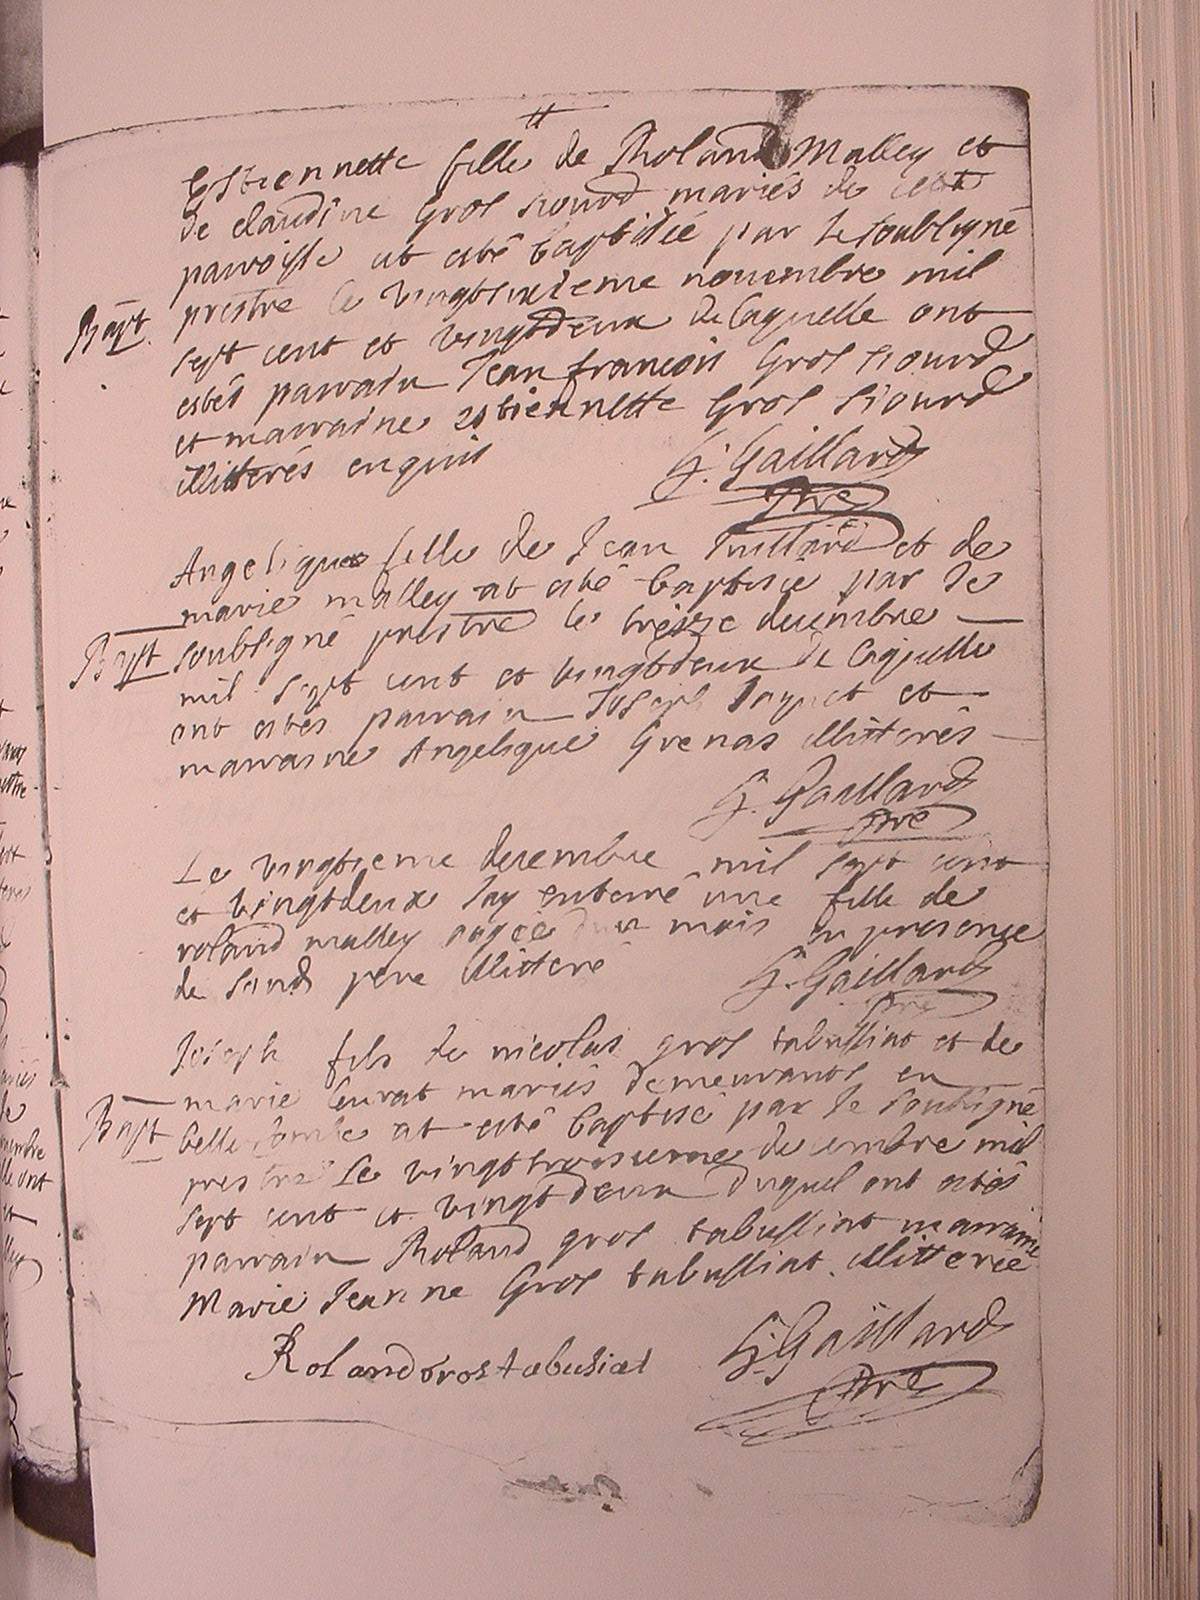 Estiennette fille de Roland Malley et
de claudine Gros Siourd mariés de cette
parroisse at esté baptisée par le soubsigné
prestre le vingtsixieme nouembre mil
Bapt.
sept cent et vingtdeux de laquelle ont
estés parrain Jean francois Gros Siourd
et marraine estiennette Gros Siourd
illitterés enquis
G. Gaillard
pre
Angelique fille de Jean et de
marie malley at esté baptisée par le
Bapt
soubsigné prestre le treizze decembre
mil sept cent et vingtdeux de laquelle
ont estés parrain Joseph et
marraine Angelique Grenas illitterés
G. Gaillard
pre
Le vingtieme decembre mil sept cent
et vingtdeux Jay enterré une fille de
roland malley agée d'un mois en presence
de sond pere illitteré
G. Gaillard
pre
Joseph fils de nicolas gros tabussiat et de
marie mariés demeurants en
Bapt
bellecombe at esté baptisé par le soubsigné
prestre Le vingttroisieme decembre mil
sept cent et vingtdeux duquel ont estés
parrain Roland gros tabussiat marraine
Marie Jeanne Gros tabussiat illitterée
Roland Gros tabusiat
G. Gaillard
pre